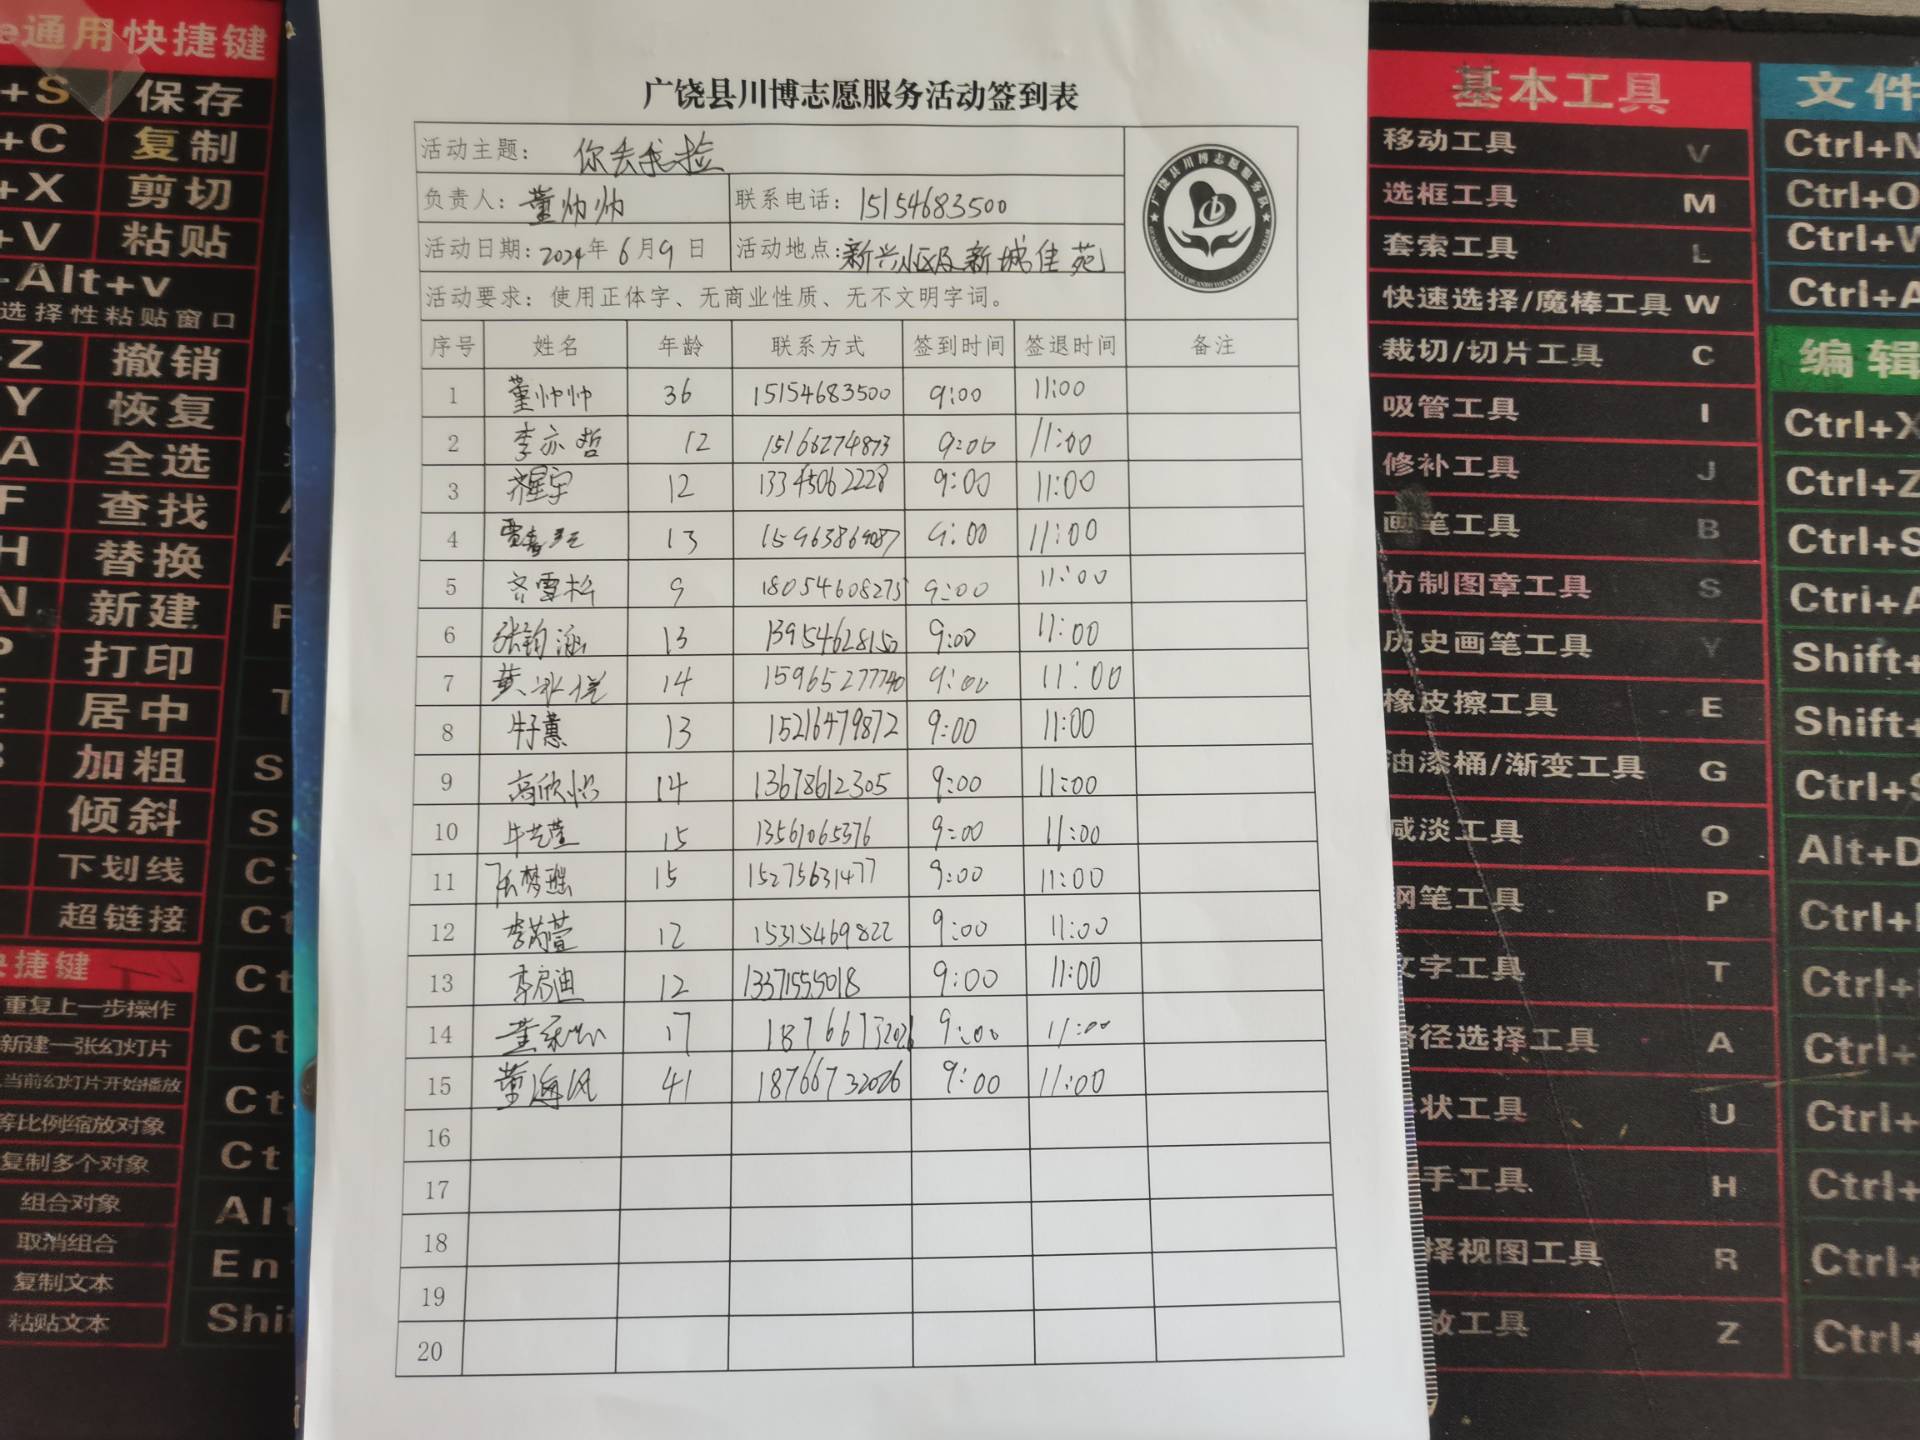 广饶县川博志愿服务活动签到表
活动主题: 你丢我捡
负责人: 董帅帅 联系电话: 15154683500
活动日期: 2024年 6月9日 活动地点: 新兴小区及新城佳苑
活动要求: 使用正体字、无商业性质、无不文明字词。
广饶县川博志愿服务队
序号 姓名 年龄 联系方式 签到时间 签退时间 备注
1 董帅帅 36 15154683500 9:00 11:00
2 李亦哲 12 15166274873 9:00 11:00
3 12 13345062228 9:00 11:00
4 13 15963869087 9:00 11:00
5 齐雪杉 9 18054608275 9:00 11:00
6 张钧涵 13 13954628150 9:00 11:00
7 黄冰悦 14 15965277740 9:00 11:00
8 牛子蕙 13 15216479872 9:00 11:00
9 高欣怡 14 13678612305 9:00 11:00
10 牛艺萱 15 13561065376 9:00 11:00
11 张梦瑶 15 15275631477 9:00 11:00
12 李芮萱 12 15315469822 9:00 11:00
13 李启迪 12 13371555018 9:00 11:00
14 17 18766732026 9:00 11:00
15 董海风 41 18766732026 9:00 11:00
16
17
18
19
20
e通用快捷键
+S 保存
+C 复制
+X 剪切
+V 粘贴
Alt+v
选择性粘贴窗口
Z 撤销
Y 恢复
A 全选
F 查找
H 替换
N 新建
P 打印
E 居中
加粗
倾斜
下划线
超链接
快捷键
重复上一步操作
新建一张幻灯片
当前幻灯片开始播放
等比例缩放对象
复制多个对象
组合对象
取消组合
复制文本
粘贴文本
S
S
Ct
Ct
Ct
Ct
Ct
Alt
En
Shif
基本工具
移动工具 V
选框工具 M
套索工具 L
快速选择/魔棒工具 W
裁切/切片工具 C
吸管工具 I
修补工具 J
画笔工具 B
仿制图章工具 S
历史画笔工具 Y
橡皮擦工具 E
油漆桶/渐变工具 G
减淡工具 O
钢笔工具 P
文字工具 T
路径选择工具 A
状工具 U
手工具 H
择视图工具 R
放工具 Z
文件
Ctrl+N
Ctrl+O
Ctrl+W
Ctrl+A
编辑
Ctrl+X
Ctrl+Z
Ctrl+S
Ctrl+A
Shift+
Shift+
Ctrl+S
Alt+D
Ctrl+
Ctrl+
Ctrl+
Ctrl+
Ctrl+
Ctrl+
Ctrl+